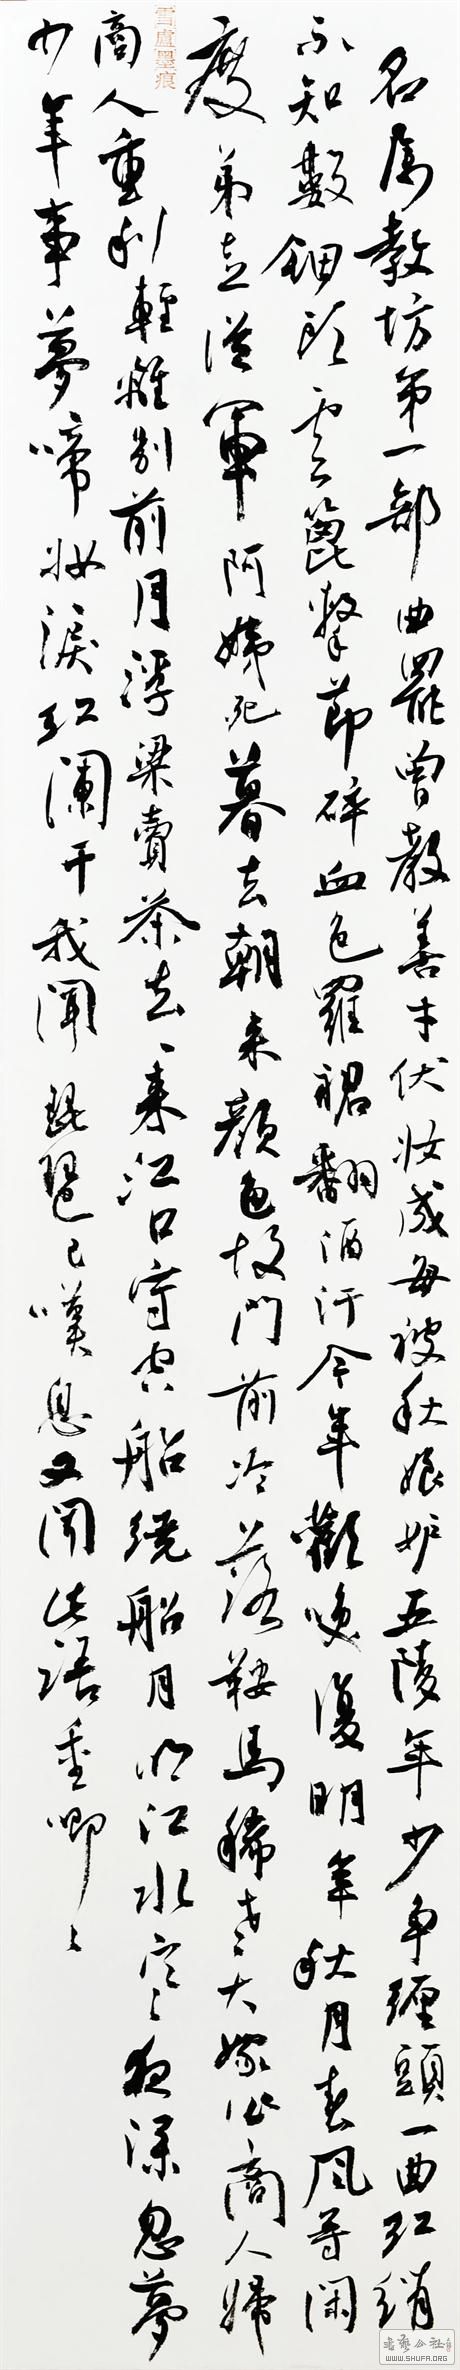 名屬教坊第一部曲罷曾教善才伏妝成每被秋娘妒五陵年少爭纏頭一曲紅綃
不知數鈿頭雲篦擊節碎血色羅裙翻酒汙今年歡咲復明年秋月春風等閑
度弟走從軍阿姨死暮去朝來顏色故門前冷落鞍馬稀老大嫁作商人婦
商人重利輕離別前月浮梁賣茶去々來江口守空船繞船月明江水寒夜深忽夢
少年事夢啼妝淚紅闌干我聞琵琶已嘆息又聞此語重唧々
雪盧墨痕
書藝公社
WWW.SHUFA.ORG